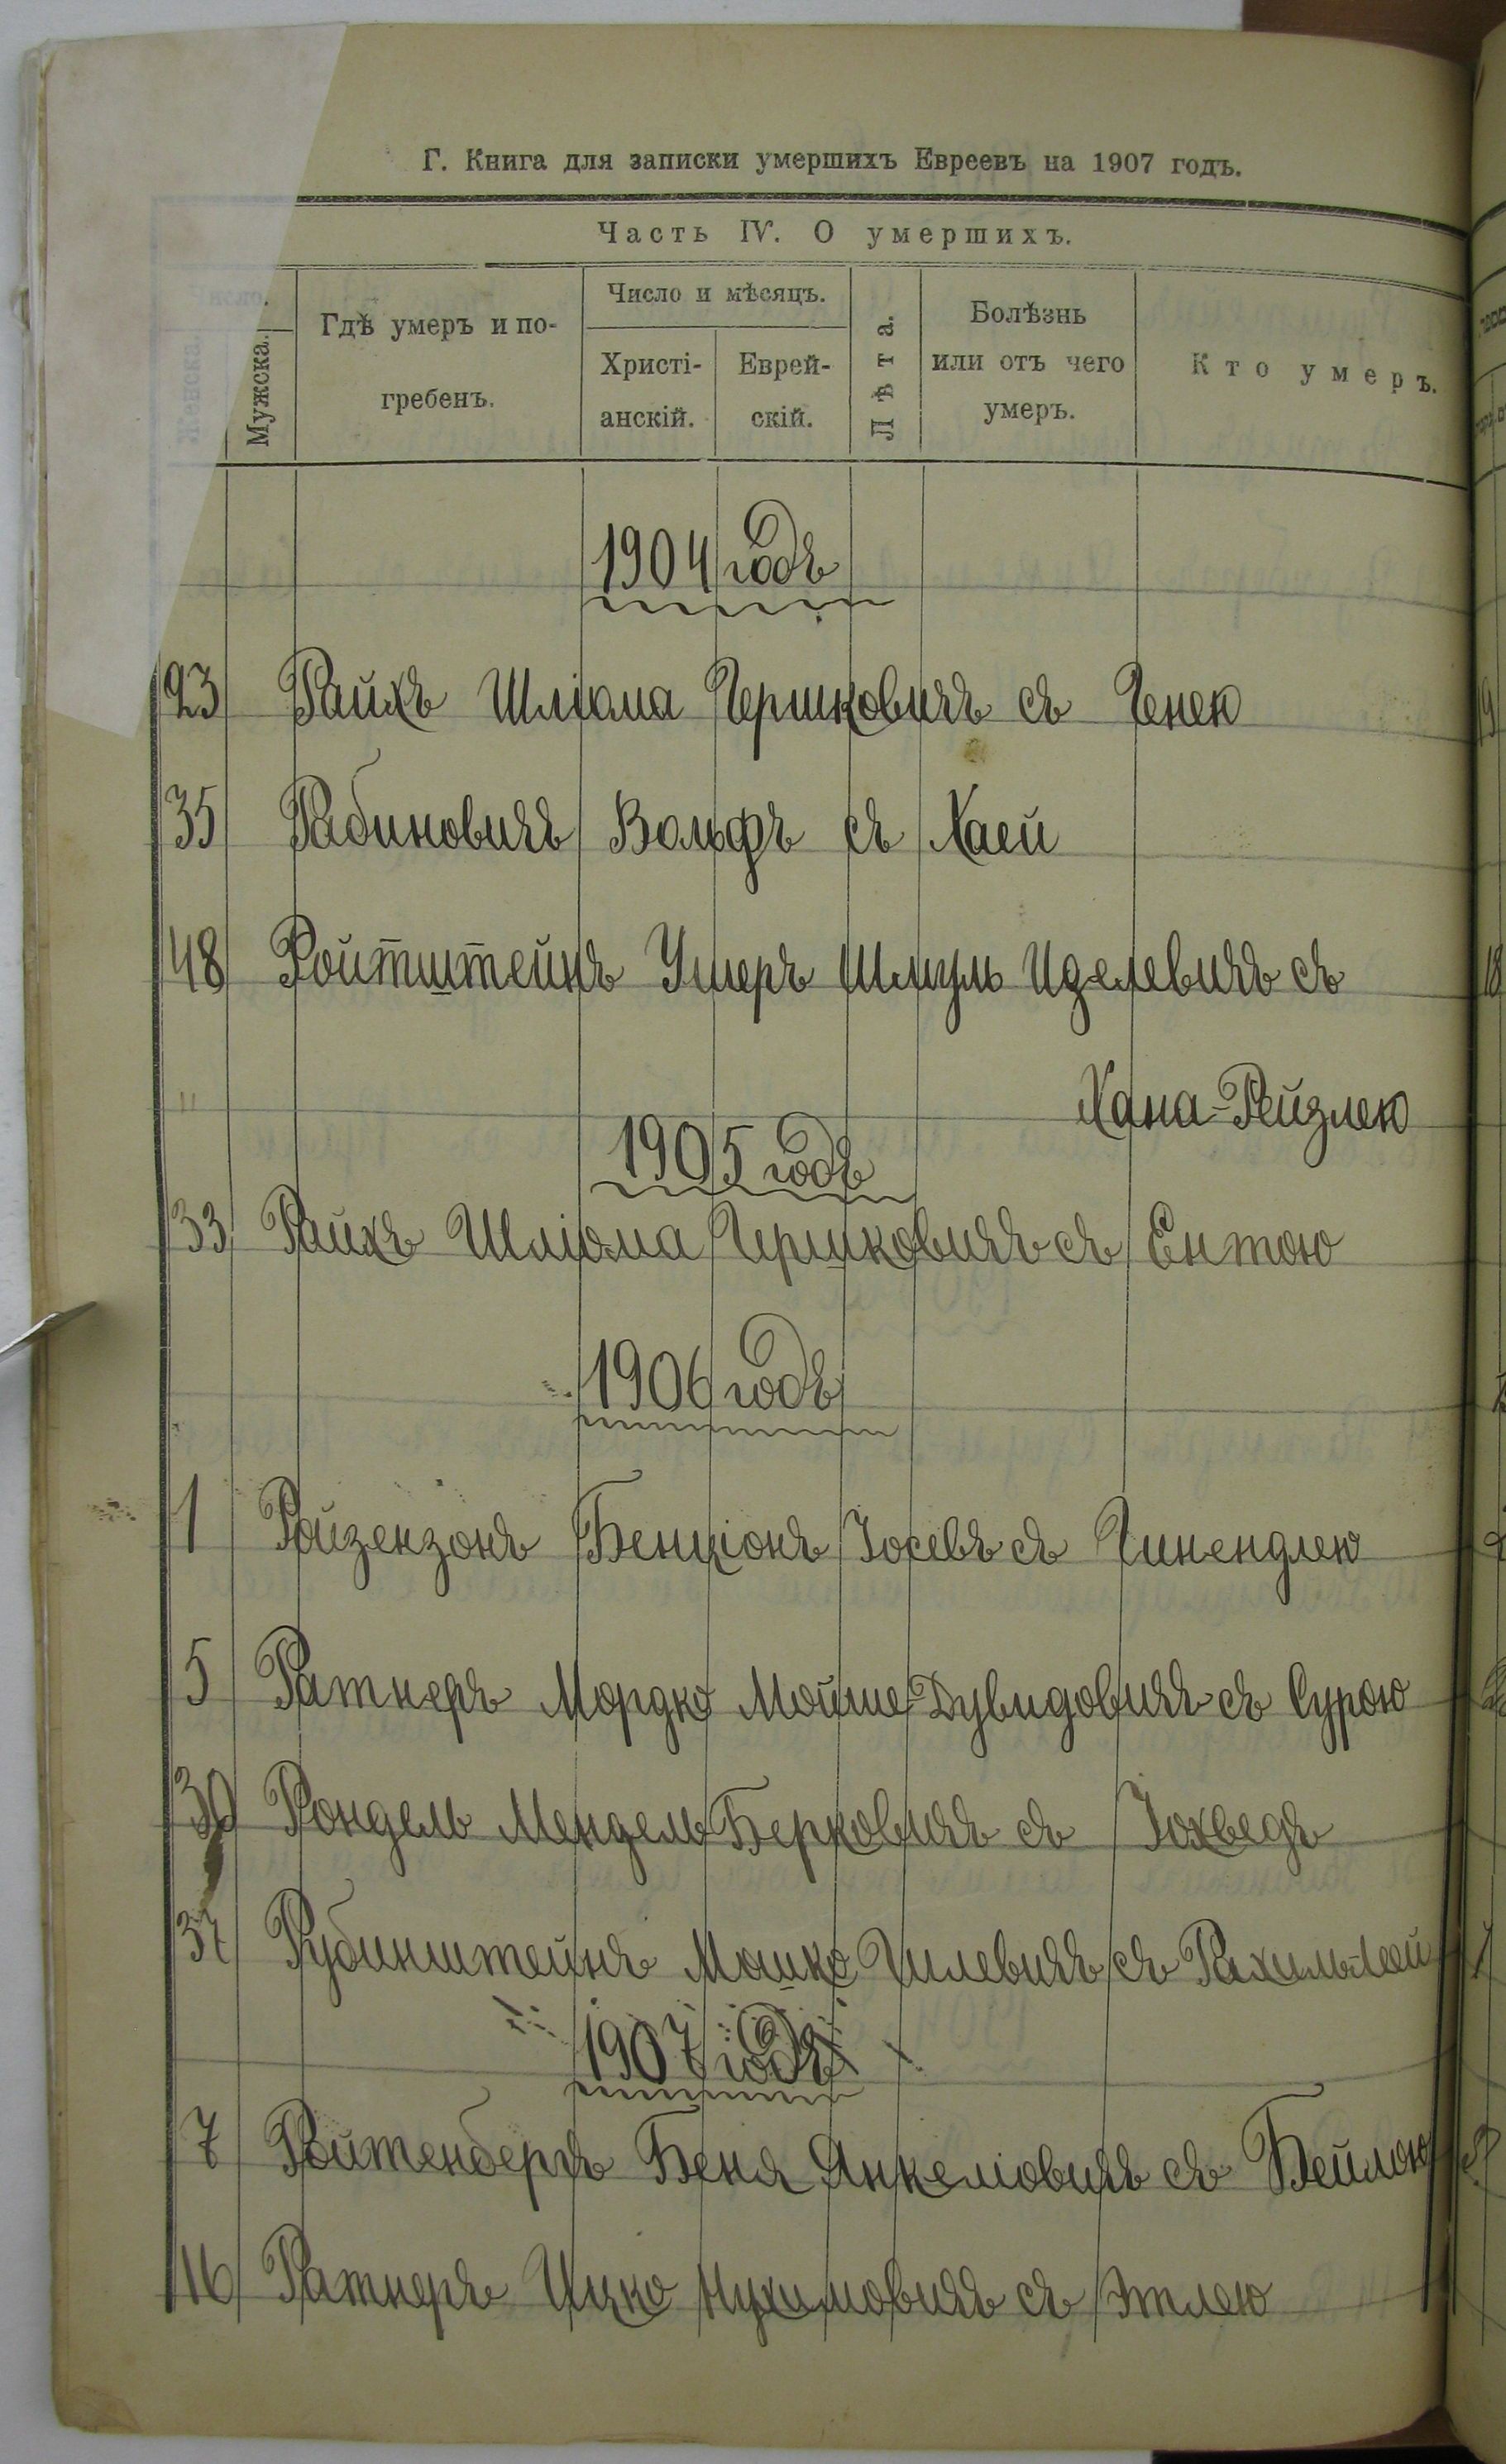 Г. Книга для записки умершихъ Евреевъ на 1907 годъ.
Часть IV. О умершихъ.
Число.
Женска.
Мужска.
Гдѣ умеръ и по-
гребенъ.
Число и мѣсяцъ.
Христі-
анскій.
Еврей-
скій.
Лѣта.
Болѣзнь
или отъ чего
умеръ.
Кто умеръ.
1904 годъ
23 Райхъ Шліома Гершковичъ съ Генею
35 Рабиновичъ Вольфъ съ Хаей
48 Ройтштейнъ Ушеръ Шмуль Иделевичъ съ
" Хана-Рейзлею
1905 годъ
33 Райхъ Шліома Гершковичъ съ Ентою
1906 годъ
1 Ройзензонъ Бенціонъ Іосевъ съ Гинендлею
5 Ратнеръ Мордко Мойше-Дувидовичъ съ Сурою
30 Рондель Мендель Берковичъ съ Іохведъ
37 Рубинштейнъ Мошко Гилевичъ съ Рахиль-Леей
1907 годъ
7 Ройтенбергъ Беня Янкеліовичъ съ Бейлою
16 Ратнеръ Ицко Нухимовичъ съ Этлею